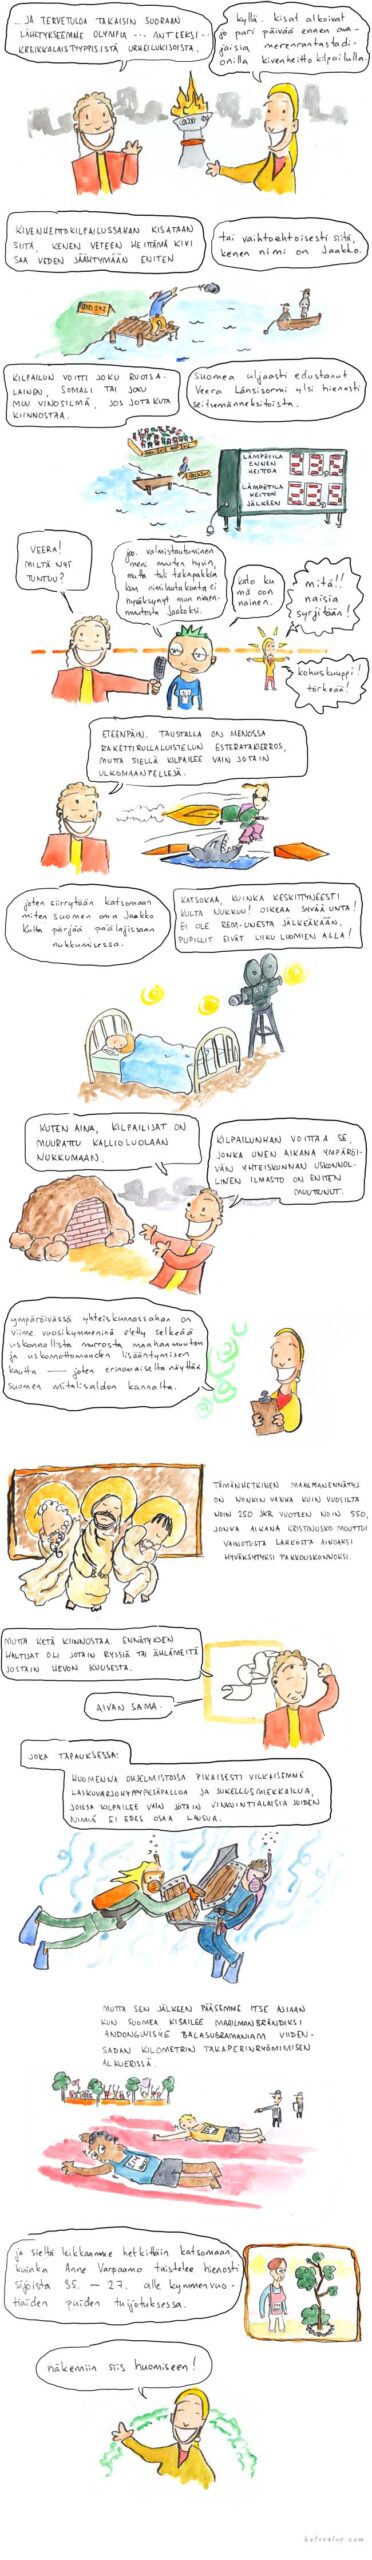 ...JA TERVETULOA TAKAISIN SUORAAN
LÄHETYKSEEMME OLYMPIA --- ANTEEKSI -
KREIKKALAISTYYPPISISTÄ URHEILUKISOISTA.
kyllä. kisat alkoivat
jo pari päivää ennen ava-
jaisia merenrantastadi-
onilla kivenheittokilpailulla.
KIVENHEITTOKILPAILUSSAHAN KISATAAN
SIITÄ, KENEN VETEEN HEITTÄMÄ KIVI
SAA VEDEN JÄÄHTYMÄÄN ENITEN
tai vaihtoehtoisesti siitä,
kenen nimi on Jaakko.
KILPAILUN VOITTI JOKU RUOTSA-
LAINEN, SOMALI TAI JOKU
MUU VINOSILMÄ, JOS JOTAKUTA
KIINNOSTAA.
suomea uljaasti edustanut
Veera Länsisormi ylsi hienosti
seitsemänneksitoista.
LÄMPÖTILA
ENNEN
HEITTOA
LÄMPÖTILA
HEITON
JÄLKEEN
VEERA!
MILTÄ NYT
TUNTUU?
joo. valmistautuminen
meni muuten hyvin,
mutta tuli takapakkia
kun nimilautakunta ei
hyväksynyt mun nimen-
muutosta Jaakoksi.
kato ku
mä oon
nainen.
mitä!!
naisia
syrjitään!
kohuskuuppi!
törkeää!
ETEENPÄIN. TAUSTALLA ON MENOSSA
RAKETTIRULLALUISTELUN ESTERATAKIERROS,
MUTTA SIELLÄ KILPAILEE VAIN JOTAIN
ULKOMAANPELLEJÄ.
joten siirrytään katsomaan
miten suomen oma Jaakko
Kulta pärjää päälajissaan
nukkumisessa.
KATSOKAA, KUINKA KESKITTYNEESTI
KULTA NUKKUU! OIKEAA SYVÄÄ UNTA!
EI OLE REM-UNESTA JÄLKEÄKÄÄN,
PUPILLIT EIVÄT LIIKU LUOMIEN ALLA!
KUTEN AINA, KILPAILIJAT ON
MUURATTU KALLIOLUOLAAN
NUKKUMAAN.
KILPAILUNHAN VOITTAA SE,
JONKA UNEN AIKANA YMPÄRÖI-
VÄN YHTEISKUNNAN USKONNOL-
LINEN ILMASTO ON ENITEN
MUUTTUNUT.
ympäröivässä yhteiskunnassahan on
viime vuosikymmeninä eletty selkeää
uskonnollista murrosta maahanmuuton
ja uskonnottomuuden lisääntymisen
kautta — joten erinomaiselta näyttää
suomen mitalisaldon kannalta.
TÄMÄNHETKINEN MAAILMANENNÄTYS
ON NIINKIN VANHA KUIN VUOSILTA
NOIN 250 JKR VUOTEEN NOIN 550,
JONKA AIKANA KRISTINUSKO MUUTTUI
VAINOTUSTA LAHKOSTA AINOAKSI
HYVÄKSYTYKSI PAKKOUSKONNOKSI.
MUTTA KETÄ KIINNOSTAA. ENNÄTYKSEN
HALTIJAT OLI JOTAIN RYSSIÄ TAI ÄHLÄMEITÄ
JOSTAIN HEVON KUUSESTA.
AIVAN SAMA.
JOKA TAPAUKSESSA:
HUOMENNA OHJELMISTOSSA PIKAISESTI VILKAISEMME
LASKUVARJOHYPPYPESÄPALLOA JA SUKELLUSMIEKKAILUA,
JOISSA KILPAILEE VAIN JOTAIN VINKUINTIALAISIA JOIDEN
NIMIÄ EI EDES OSAA LAUSUA.
MUTTA SEN JÄLKEEN PÄÄSEMME ITSE ASIAAN
KUN SUOMEA KISAILEE MAAILMANBRÄNDIKSI
BALASUBRAMANIAM VIIDEN-
SADAN KILOMETRIN TAKAPERINRYÖMIMISEN
ALKUERISSÄ.
ja sieltä leikkaamme hetkittäin katsomaan,
kuinka Anne Varpaamo taistelee hienosti
sijoista 35. – 27. alle kymmenvuo-
tiaiden puiden tuijotuksessa.
näkemiin siis huomiseen!